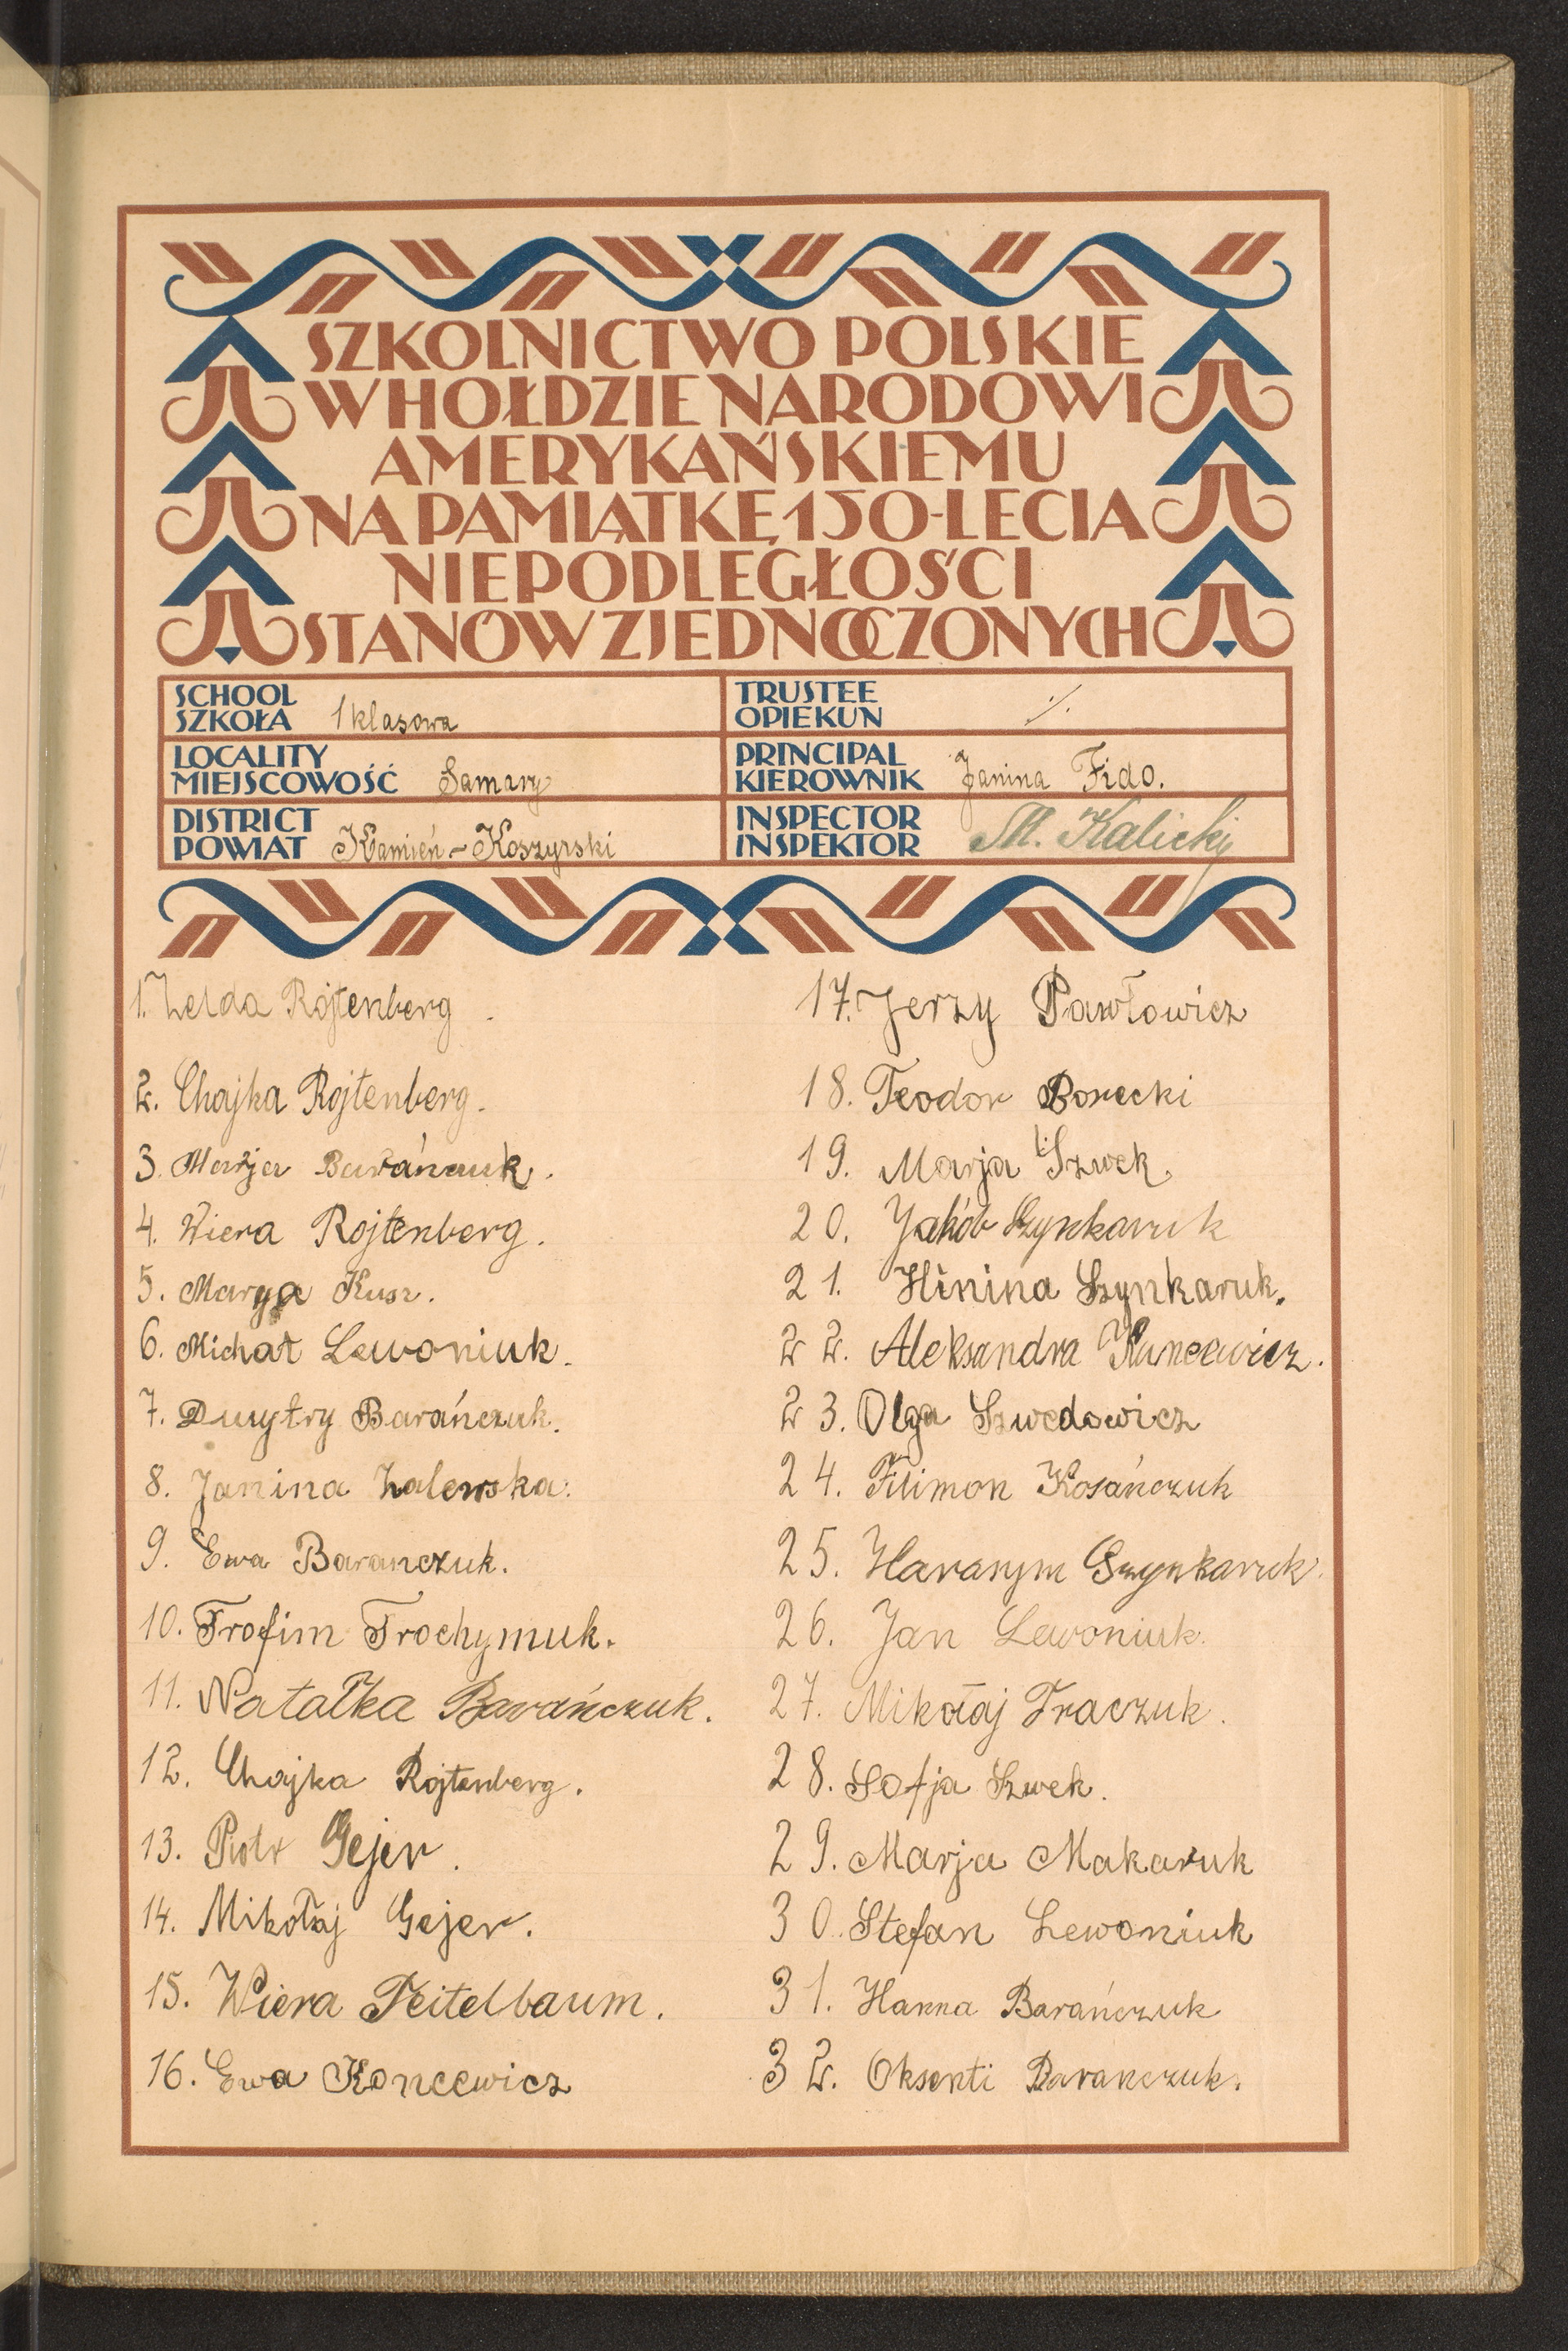 SZKOLNICTWO POLSKIE
W HOŁDZIE NARODOWI
AMERYKAŃSKIEMU
NA PAMIĄTKĘ 150-LECIA
NIEPODLEGŁOŚCI
STANÓW ZJEDNOCZONYCH
SCHOOL
SZKOŁA 1 klasowa
TRUSTEE
OPIEKUN ./.
LOCALITY
MIEJSCOWOŚĆ Samary
PRINCIPAL
KIEROWNIK Janina Fido.
DISTRICT
POWIAT Kamień-Koszyrski
INSPECTOR
INSPEKTOR M. Kalicki
1. Zelda Rojtenberg.
2. Chajka Rojtenberg.
3. Marja Barańczuk.
4. Wiera Rojtenberg.
5. Marya Kusz.
6. Michał Lewoniuk.
7. Dmytry Barańczuk.
8. Janina Zalewska.
9. Ewa Baranczuk.
10. Trofim Trochymuk.
11. Natalka Barańczuk.
12. Chajka Rojtenberg.
13. Piotr Gejer.
14. Mikołaj Gejer.
15. Wiera Teitelbaum.
16. Ewa Koncewicz
17. Jerzy Pawłowicz
18. Teodor Borecki
19. Marja Szwek.
20. Jakób Szynkaruk
21. Hinina Szynkaruk.
22. Aleksandra Kuncewicz.
23. Olga Szwedowicz
24. Filimon Kosańczuk
25. Harasym Szynkaruk.
26. Jan Lewoniuk.
27. Mikołaj Traczuk.
28. Sofja Szwek.
29. Marja Makaruk
30. Stefan Lewoniuk
31. Hanna Barańczuk
32. Oksenti Baranczuk.